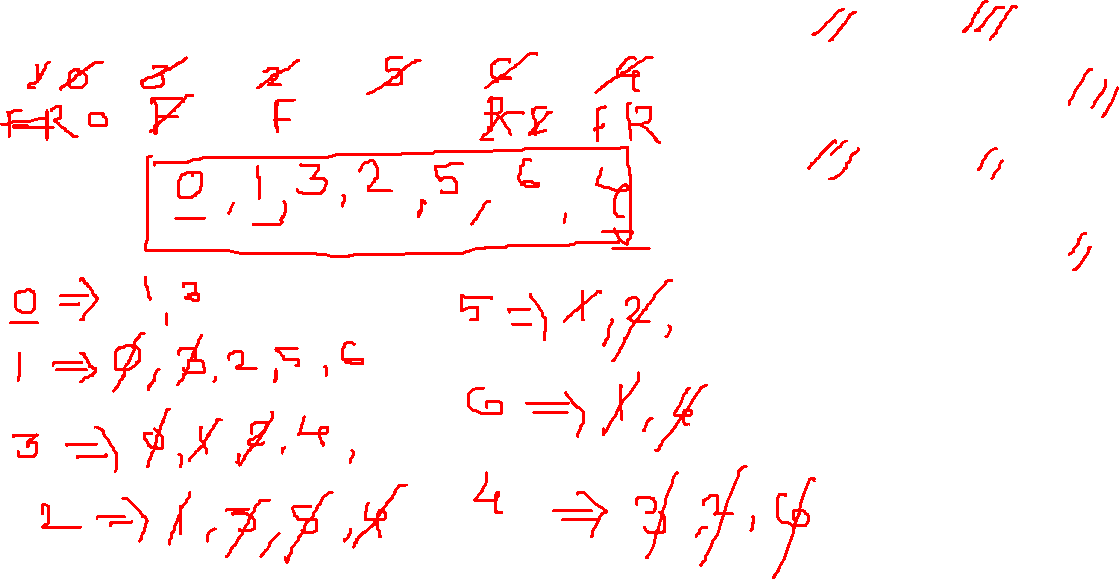 1 0 3 2 5 6 4
F R 0 F F R R F R
0, 1, 3, 2, 5, 6, 4
0 => 1, 3
1 => 0, 3, 2, 5, 6
3 => 0, 1, 2, 4,
2 => 1, 3, 5, 4
5 => 1, 2,
6 => 1, 4
4 => 3, 2, 6